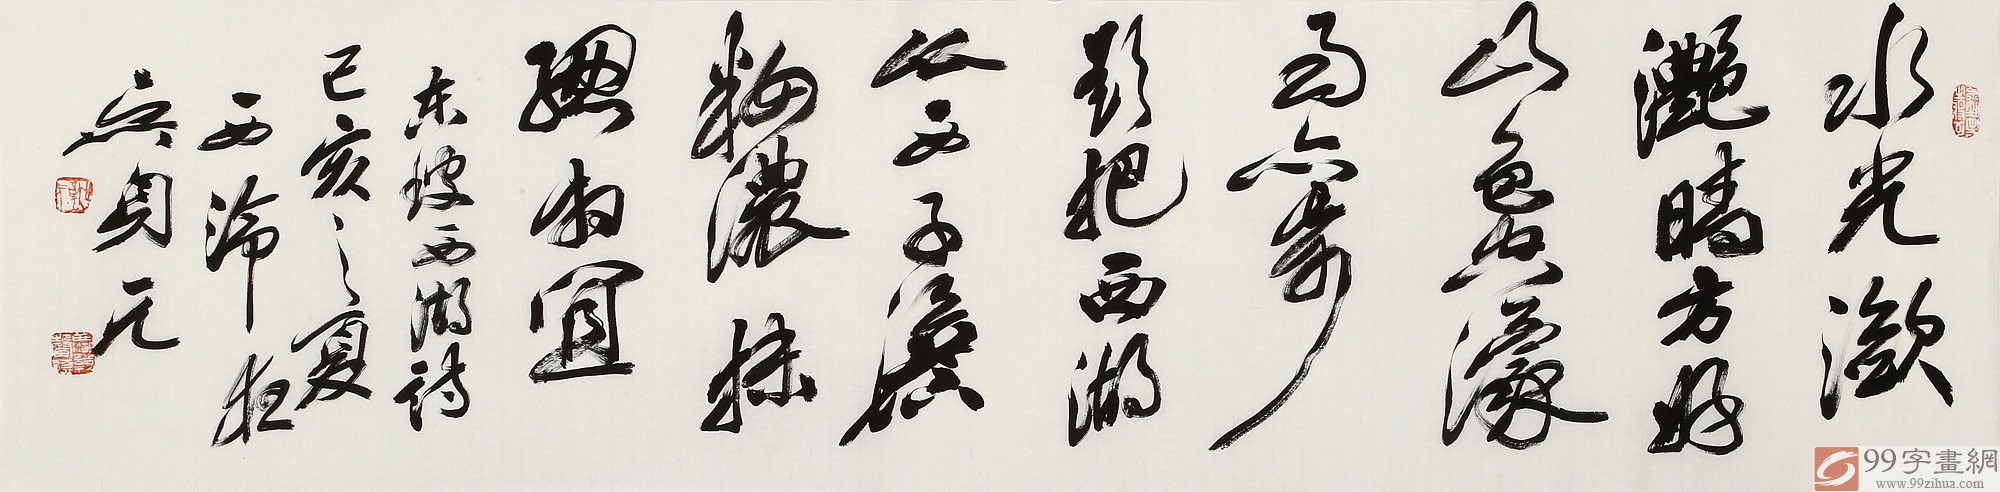 水光瀲
灧晴方好
山色空濛
雨亦奇
欲把西湖
比西子淡
粧濃抹
總相宜
东坡西湖詩
己亥之夏
西
吴
99字畫網
www.99zihua.com